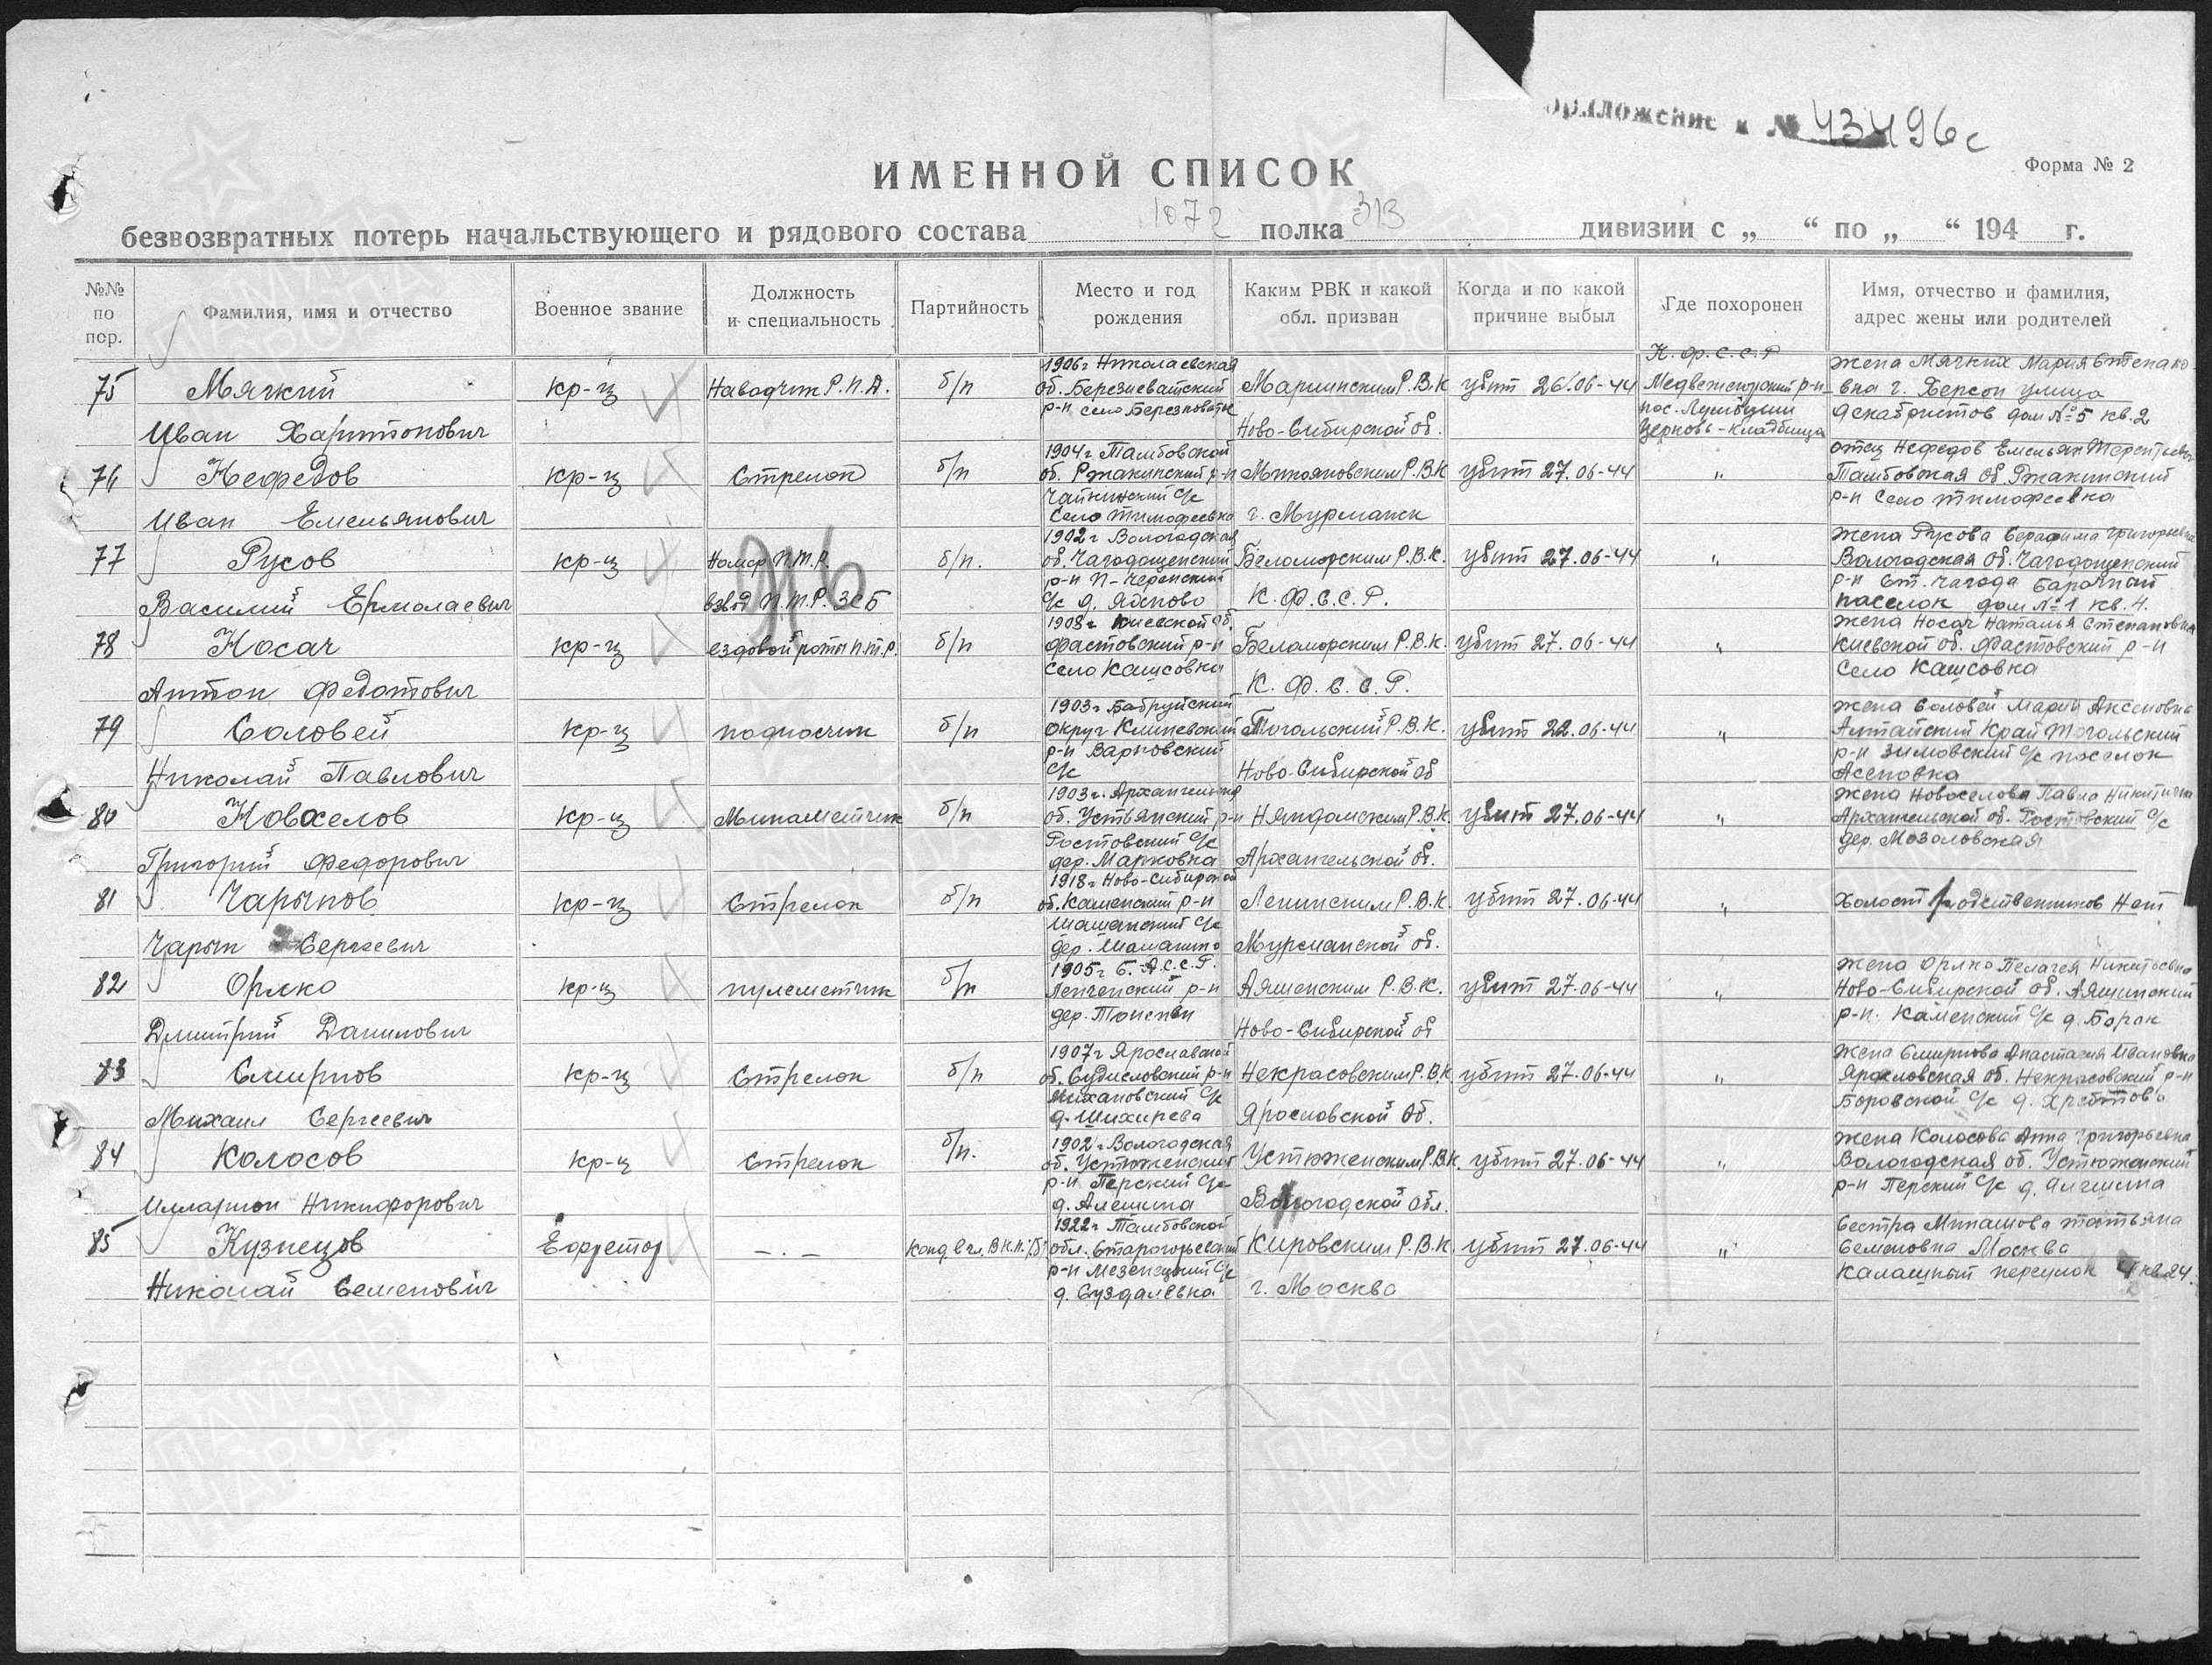 приложение к № 43496с
ИМЕННОЙ СПИСОК
Форма № 2
безвозвратных потерь начальствующего и рядового состава 1072 полка 313 дивизии с „ “ по „ “ 194 г.
№№ по пор.
Фамилия, имя и отчество
Военное звание
Должность и специальность
Партийность
Место и год рождения
Каким РВК и какой обл. призван
Когда и по какой причине выбыл
Где похоронен
Имя, отчество и фамилия, адрес жены или родителей
75 Мягкий Иван Харитонович
кр-ц
Наводчик Р.П.Д.
б/п
1906г Николаевская
об.
р-н село
Мариинским Р.В.К
Ново-Сибирской об.
убит 26.06-44
К.Ф.С.С.Р
Медвежегорский р-н
пос.
церковь-кладбища
жена Мягких Мария Степано
вна г. Херсон улица
декабристов дом №5 кв.2
76 Нефедов Иван Емельянович
кр-ц
Стрелок
б/п
1904г Тамбовской
об. Ржакинский р-н
Чайкинский с/с
село Тимофеевка
Микояновским Р.В.К
г. Мурманск
убит 27.06-44
"
отец Нефедов Емельян
Тамбовская об. Ржакинский
р-н село Тимофеевка
77 Русов Василий Ермолаевич
кр-ц
Номер П.Т.Р.
взвод П.Т.Р. 3СБ
916
б/п.
1902г Вологодская
об. Чагодощенский
р-н
с/с д.
Беломорским Р.В.К.
К.Ф.С.С.Р.
убит 27.06-44
"
жена Русова Серафима Григорьевна
Вологодская об. Чагодощенский
р-н ст. Чагода Барачный
поселок дом №1 кв.4.
78 Носач Антон Федотович
кр-ц
ездовой роты П.Т.Р.
б/п
1908г Киевской об.
Фастовский р-н
село Кашсовка
Беломорским Р.В.К.
К.Ф.С.С.Р.
убит 27.06-44
"
жена Носач Наталья Степановна
Киевской об. Фастовский р-н
село Кашсовка
79 Соловей Николай Павлович
кр-ц
подносчик
б/п
1903г Бабруйский
округ
р-н Варковский
с/с
Тогольский Р.В.К.
Ново-Сибирской об
убит 22.06-44
"
жена Соловей Мария Аксеновна
Алтайский Край Тогольский
р-н Зимовский с/с поселок
Асеновка
80 Новоселов Григорий Федорович
кр-ц
Минометчик
б/п
1903г. Архангельская
об. Устьянский р-н
Ростовский с/с
дер. Марковка
Няндомским Р.В.К.
Архангельской об.
убит 27.06-44
"
жена Новоселова Павла Никитична
Архангельской об. Ростовский с/с
дер. Мозоловская
81 Чарыков Чарык Сергеевич
кр-ц
Стрелок
б/п
1918г Ново-Сибирской
об. Каменский р-н
с/с
дер.
Ленинским Р.В.К.
Мурманской об.
убит 27.06-44
"
Холост родственников Нет
82 Орлко Дмитрий Данилович
кр-ц
пулеметчик
б/п
1905г Б.А.С.С.Р.
р-н
дер.
Аяшенским Р.В.К.
Ново-Сибирской об
убит 27.06-44
"
жена Орлко Пелагея Никитьевна
Ново-Сибирской об. Аяшинский
р-н. Каменский с/с д. Барак
83 Смирнов Михаил Сергеевич
кр-ц
Стрелок
б/п
1907г Ярославской
об. Судисловский р-н
с/с
д.
Некрасовским Р.В.К
Ярославской об.
убит 27.06-44
"
жена Смирнова Анастасия Ивановна
Ярославская об. Некрасовский р-н
Боровской с/с д.
84 Колосов Илларион Никифорович
кр-ц
Стрелок
б/п.
1902г. Вологодская
об. Устюженский
р-н Перский с/с
д. Алешина
Устюженским Р.В.К.
Вологодской обл.
убит 27.06-44
"
жена Колосова Анна Григорьевна
Вологодская об. Устюженский
р-н Перский с/с д. Алешина
85 Кузнецов Николай Семенович
Ефрейтор
-.-
Канд. в чл. ВКП.(б)
1922г Тамбовской
обл.
р-н с/с
д. Суздалевка
Кировским Р.В.К.
г. Москва
убит 27.06-44
"
Сестра Минашова Татьяна
Семеновна Москва
Калашный переулок 4 кв.24.